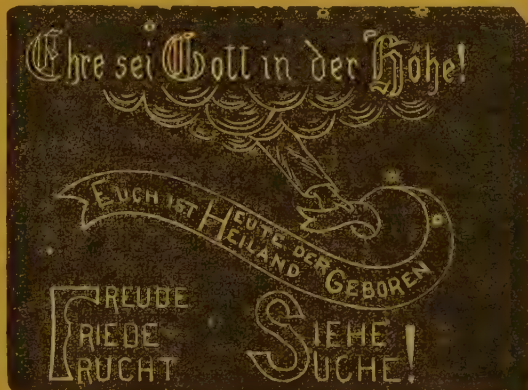 Ehre sei Gott in der Höhe!
EUCH IST HEUTE DER HEILAND GEBOREN
FREUDE
FRIEDE
FRUCHT
SIEHE
SUCHE!